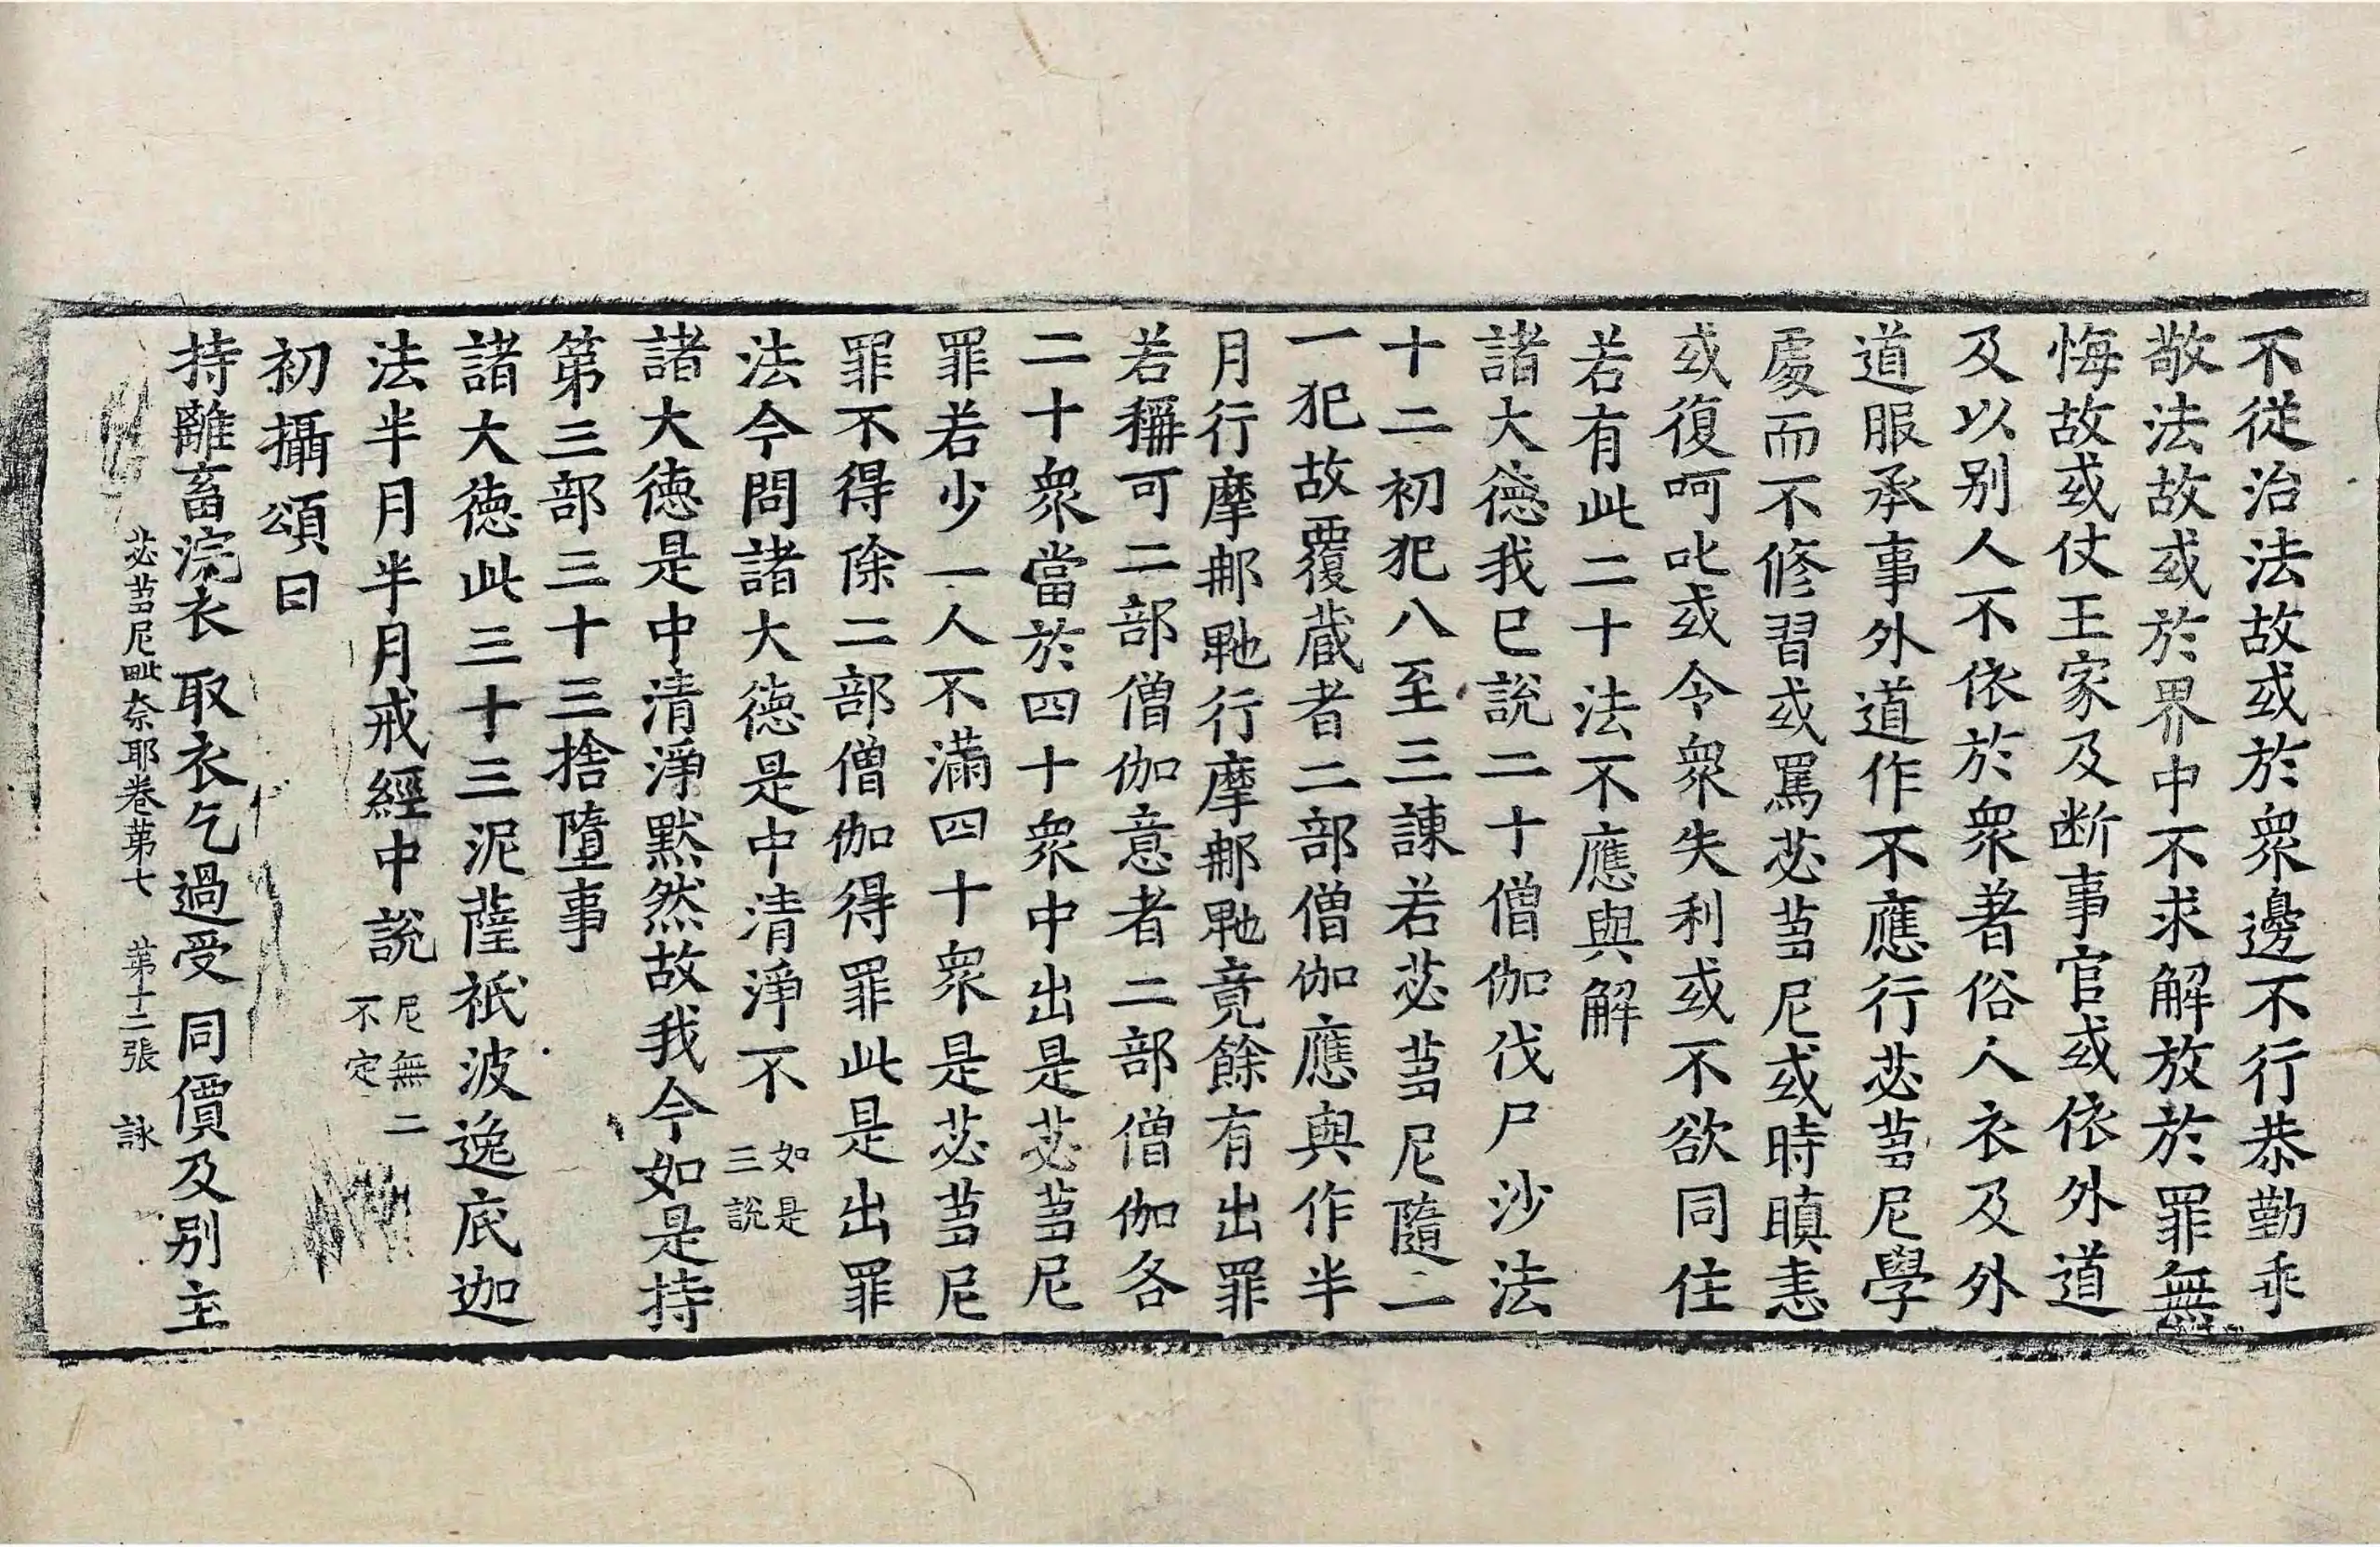 不從治法故或於衆邊不行恭勤乖
敬法故或於界中不求解放於罪無
悔故或仗王家及斷事官或依外道
及以别人不依於衆著俗人衣及外
道服承事外道作不應行苾蒭尼學
處而不修習或罵苾蒭尼或時瞋恚
或復呵叱或令衆失利或不欲同住
若有此二十法不應與解
諸大德我已說二十僧伽伐尸沙法
十二初犯八至三諫若苾蒭尼隨一
一犯故覆藏者二部僧伽應與作半
月行摩那䩭行摩那䩭竟餘有出罪
若稱可二部僧伽意者二部僧伽各
二十衆當於四十衆中出是苾蒭尼
罪若少一人不滿四十衆是苾蒭尼
罪不得除二部僧伽得罪此是出罪
法今問諸大德是中清淨不 如是三說
諸大德是中清淨默然故我今如是持
第三部三十三捨墮事
諸大德此三十三泥薩祇波逸底迦
法半月半月戒經中說 尼無二不定
初攝頌曰
持離畜浣衣 取衣乞過受 同價及别主
苾蒭尼毗奈耶卷第七 第十二張 詠